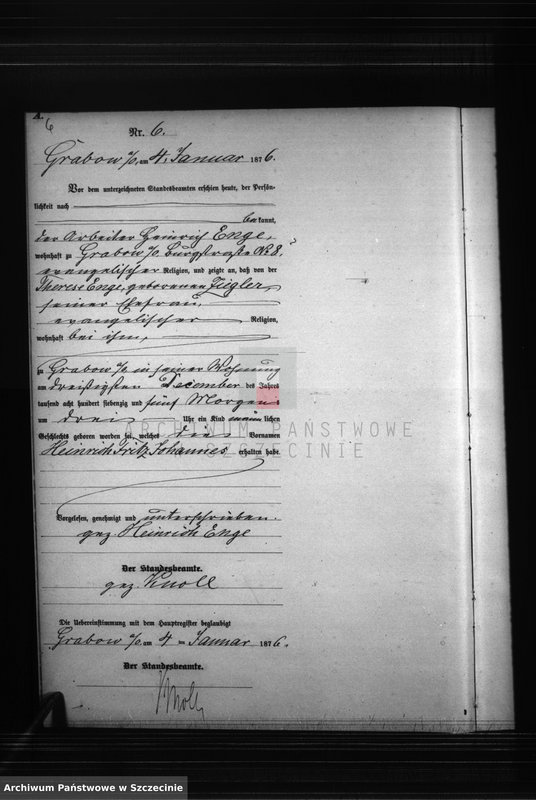 A.
6
Nr. 6.
Grabow a/O. am 4. Januar 1876.
Vor dem unterzeichneten Standesbeamten erschien heute, der Persön-
lichkeit nach
bekannt,
der Arbeiter Heinrich Enge,
wohnhaft zu Grabow a/O Burgstraße No 8,
evangelischer Religion, und zeigte an, daß von der
Therese Enge, geborenen Ziegler,
seiner Ehefrau,
evangelischer Religion,
wohnhaft bei ihm,
zu Grabow a/O in seiner Wohnung
am dreißigsten December des Jahres
tausend acht hundert siebenzig und fünf Morgens
um drei Uhr ein Kind männlichen
Geschlechts geboren worden sei, welches die Vornamen
Heinrich Fritz Johannes erhalten habe.
ARCHIWUM PAŃSTWOWE
W SZCZECINIE
Vorgelesen, genehmigt und unterschrieben.
gez. Heinrich Enge
Der Standesbeamte.
gez. Knoll
Die Uebereinstimmung mit dem Hauptregister beglaubigt
Grabow a/O. am 4 ten Januar 1876.
Der Standesbeamte.
Knoll
Archiwum Państwowe w Szczecinie